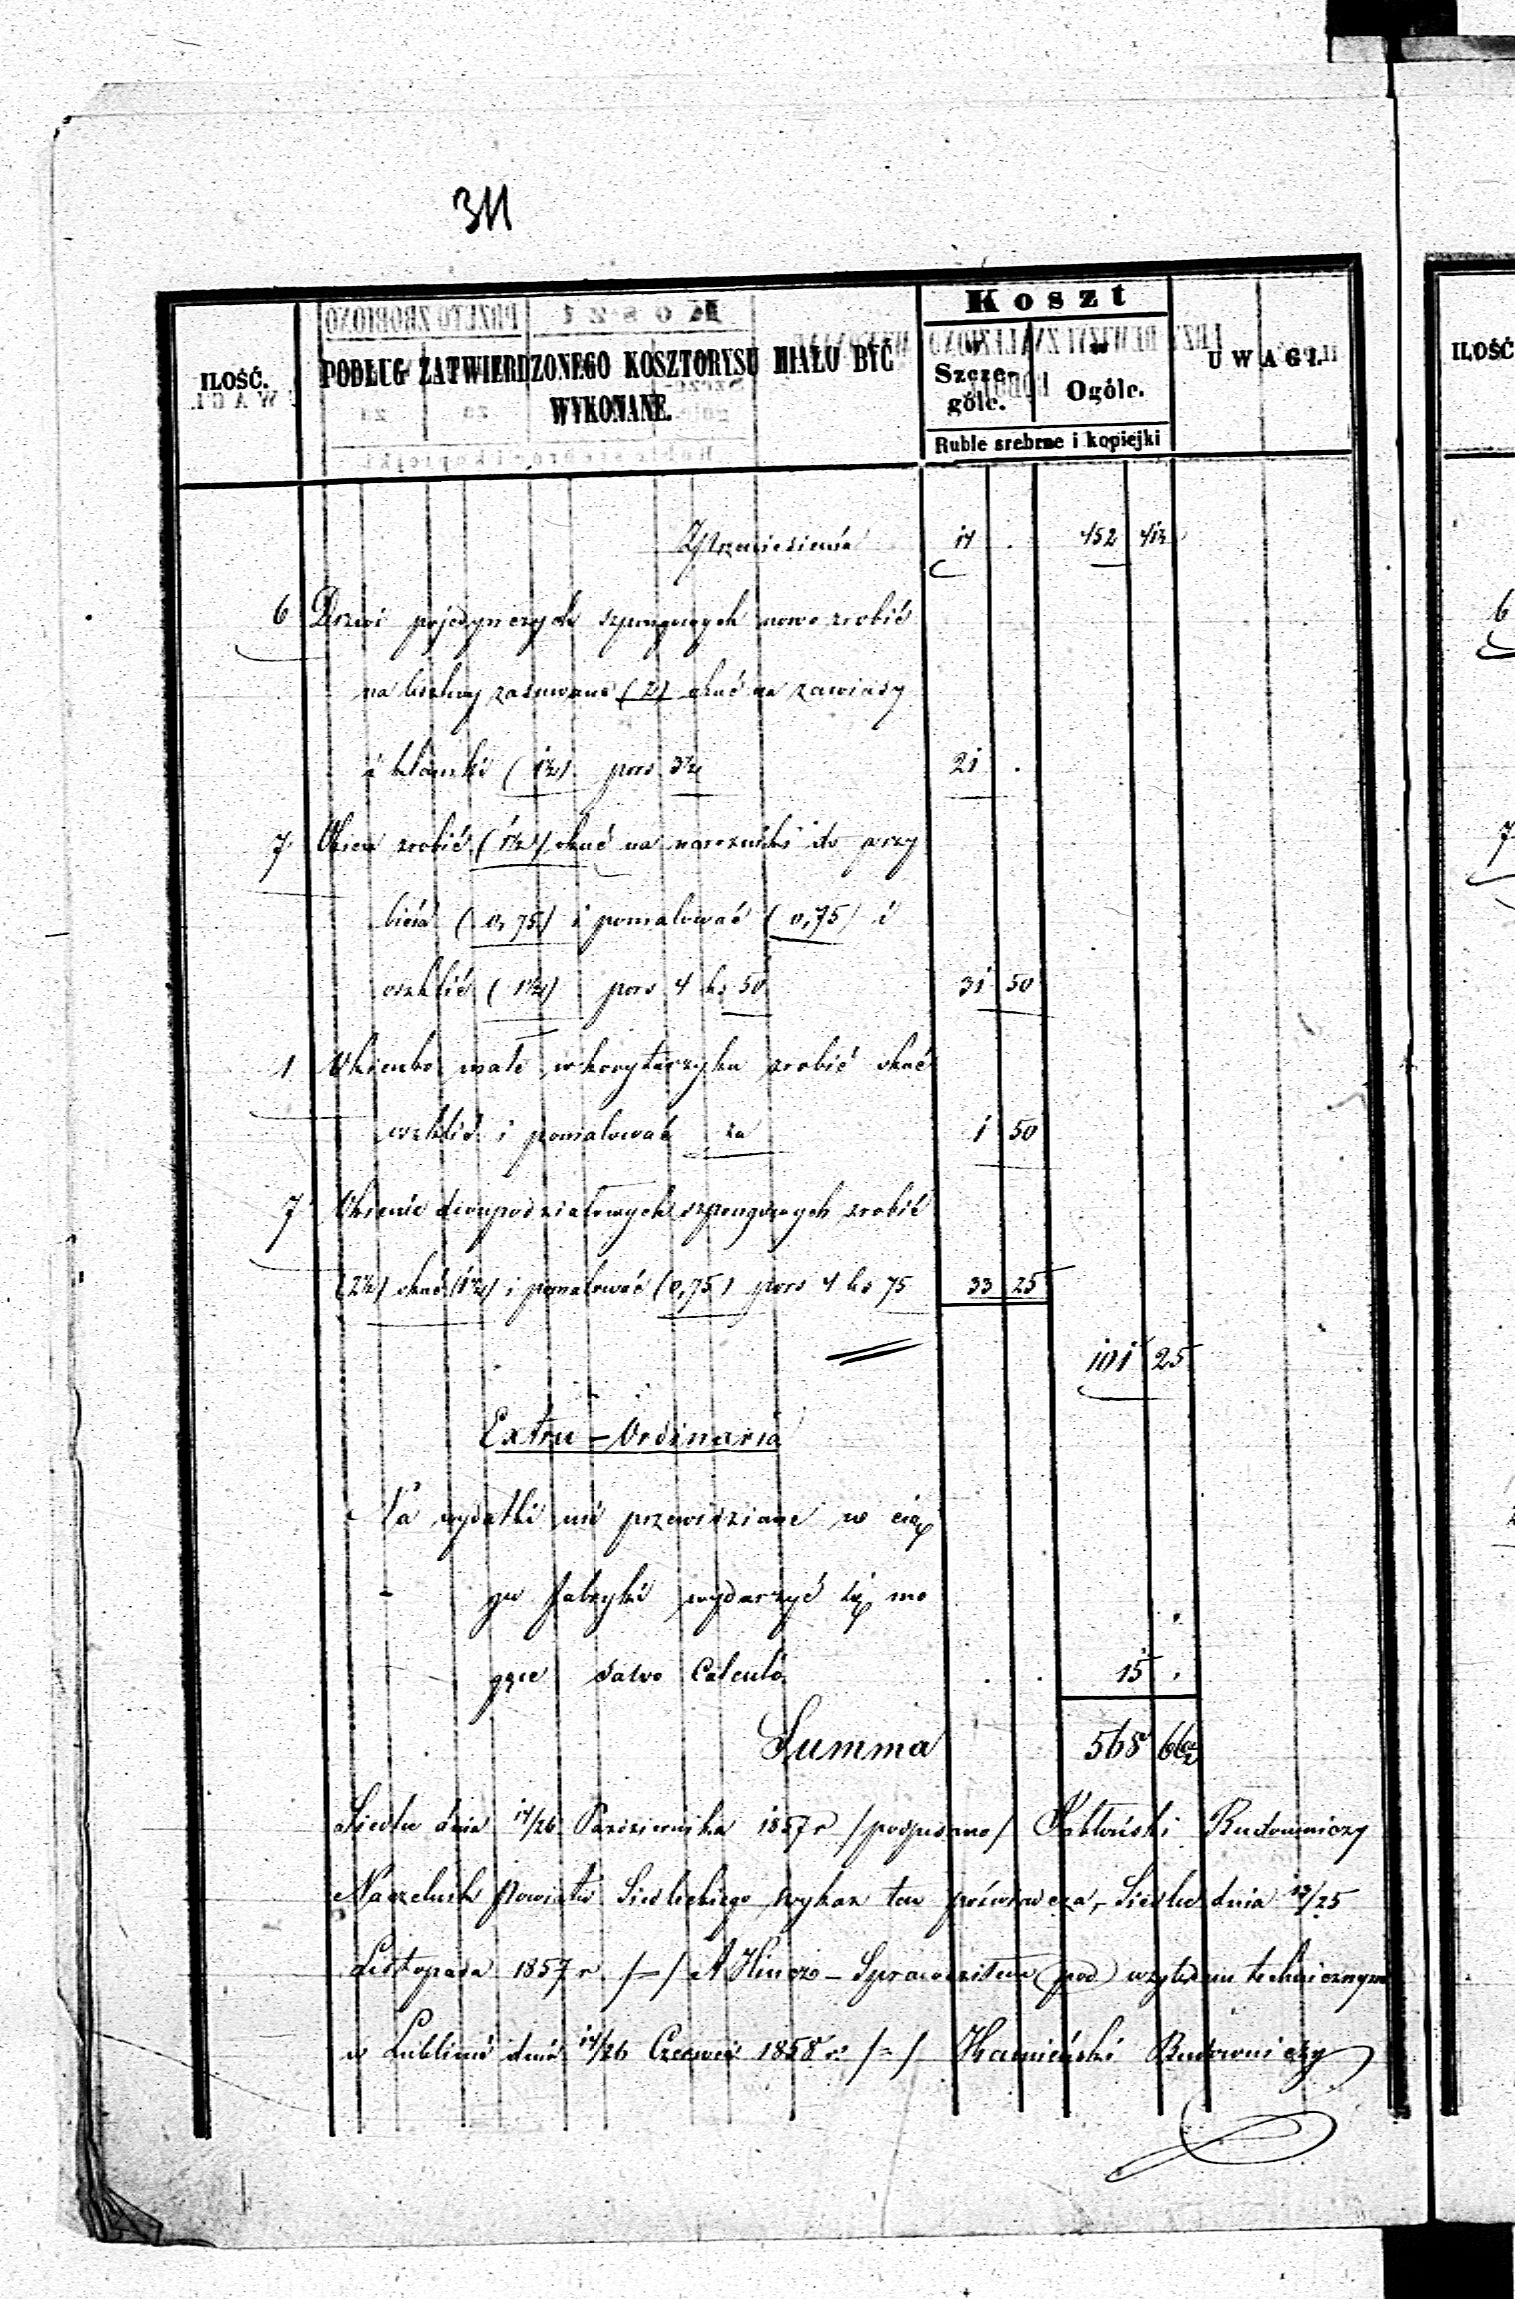 311
Koszt
ILOŚĆ.
PODŁUG ZATWIERDZONEGO KOSZTORYSU MIAŁO BYĆ
WYKONANE.
w Szcze-
góle.
w Ogóle.
UWAGI.
Ruble srebrne i kopiejki
Z przeniesienia 14 . 452 41½
6 Drzwi pojedynczych szpungowych nowo zrobić
na listwy zasuwane (2) okuć na zawiasy
i klamki (1½) poro 3½ 21 .
7 Okien zrobić (1½) okuć na narożniki do przy
bicia (0,75) i pomalować (0,75) i
oszklić (1½) poro 4 ks 50 31 50
1 Okienko małe w korytarzyku zrobić okuć
oszklić i pomalować za 1 50
7 Okienic dwupodziałowych szpungowych zrobić
(2½) okuć (1½) i pomalować (0,75) poro 4 ks 75 33 25
101 25
Extra-Ordinaria
Na wydatki nie przewidziane w cią
gu fabryki wydarzyć się mo
gące Salvo Calculo . . 15 .
Summa 568 66½
Siedlce dnia 14/26 Października 1857 r /podpisano/ Budowniczy
Naczelnik Powiatu Siedleckiego wykaz ten poświadcza, Siedlce dnia 13/25
Listopada 1857 r /-/ A Hincz - pod względem technicznym
w Lublinie dnia 14/26 Czerwca 1858 r: /-/ Kamieński Budowniczy
ILOŚĆ
6
7